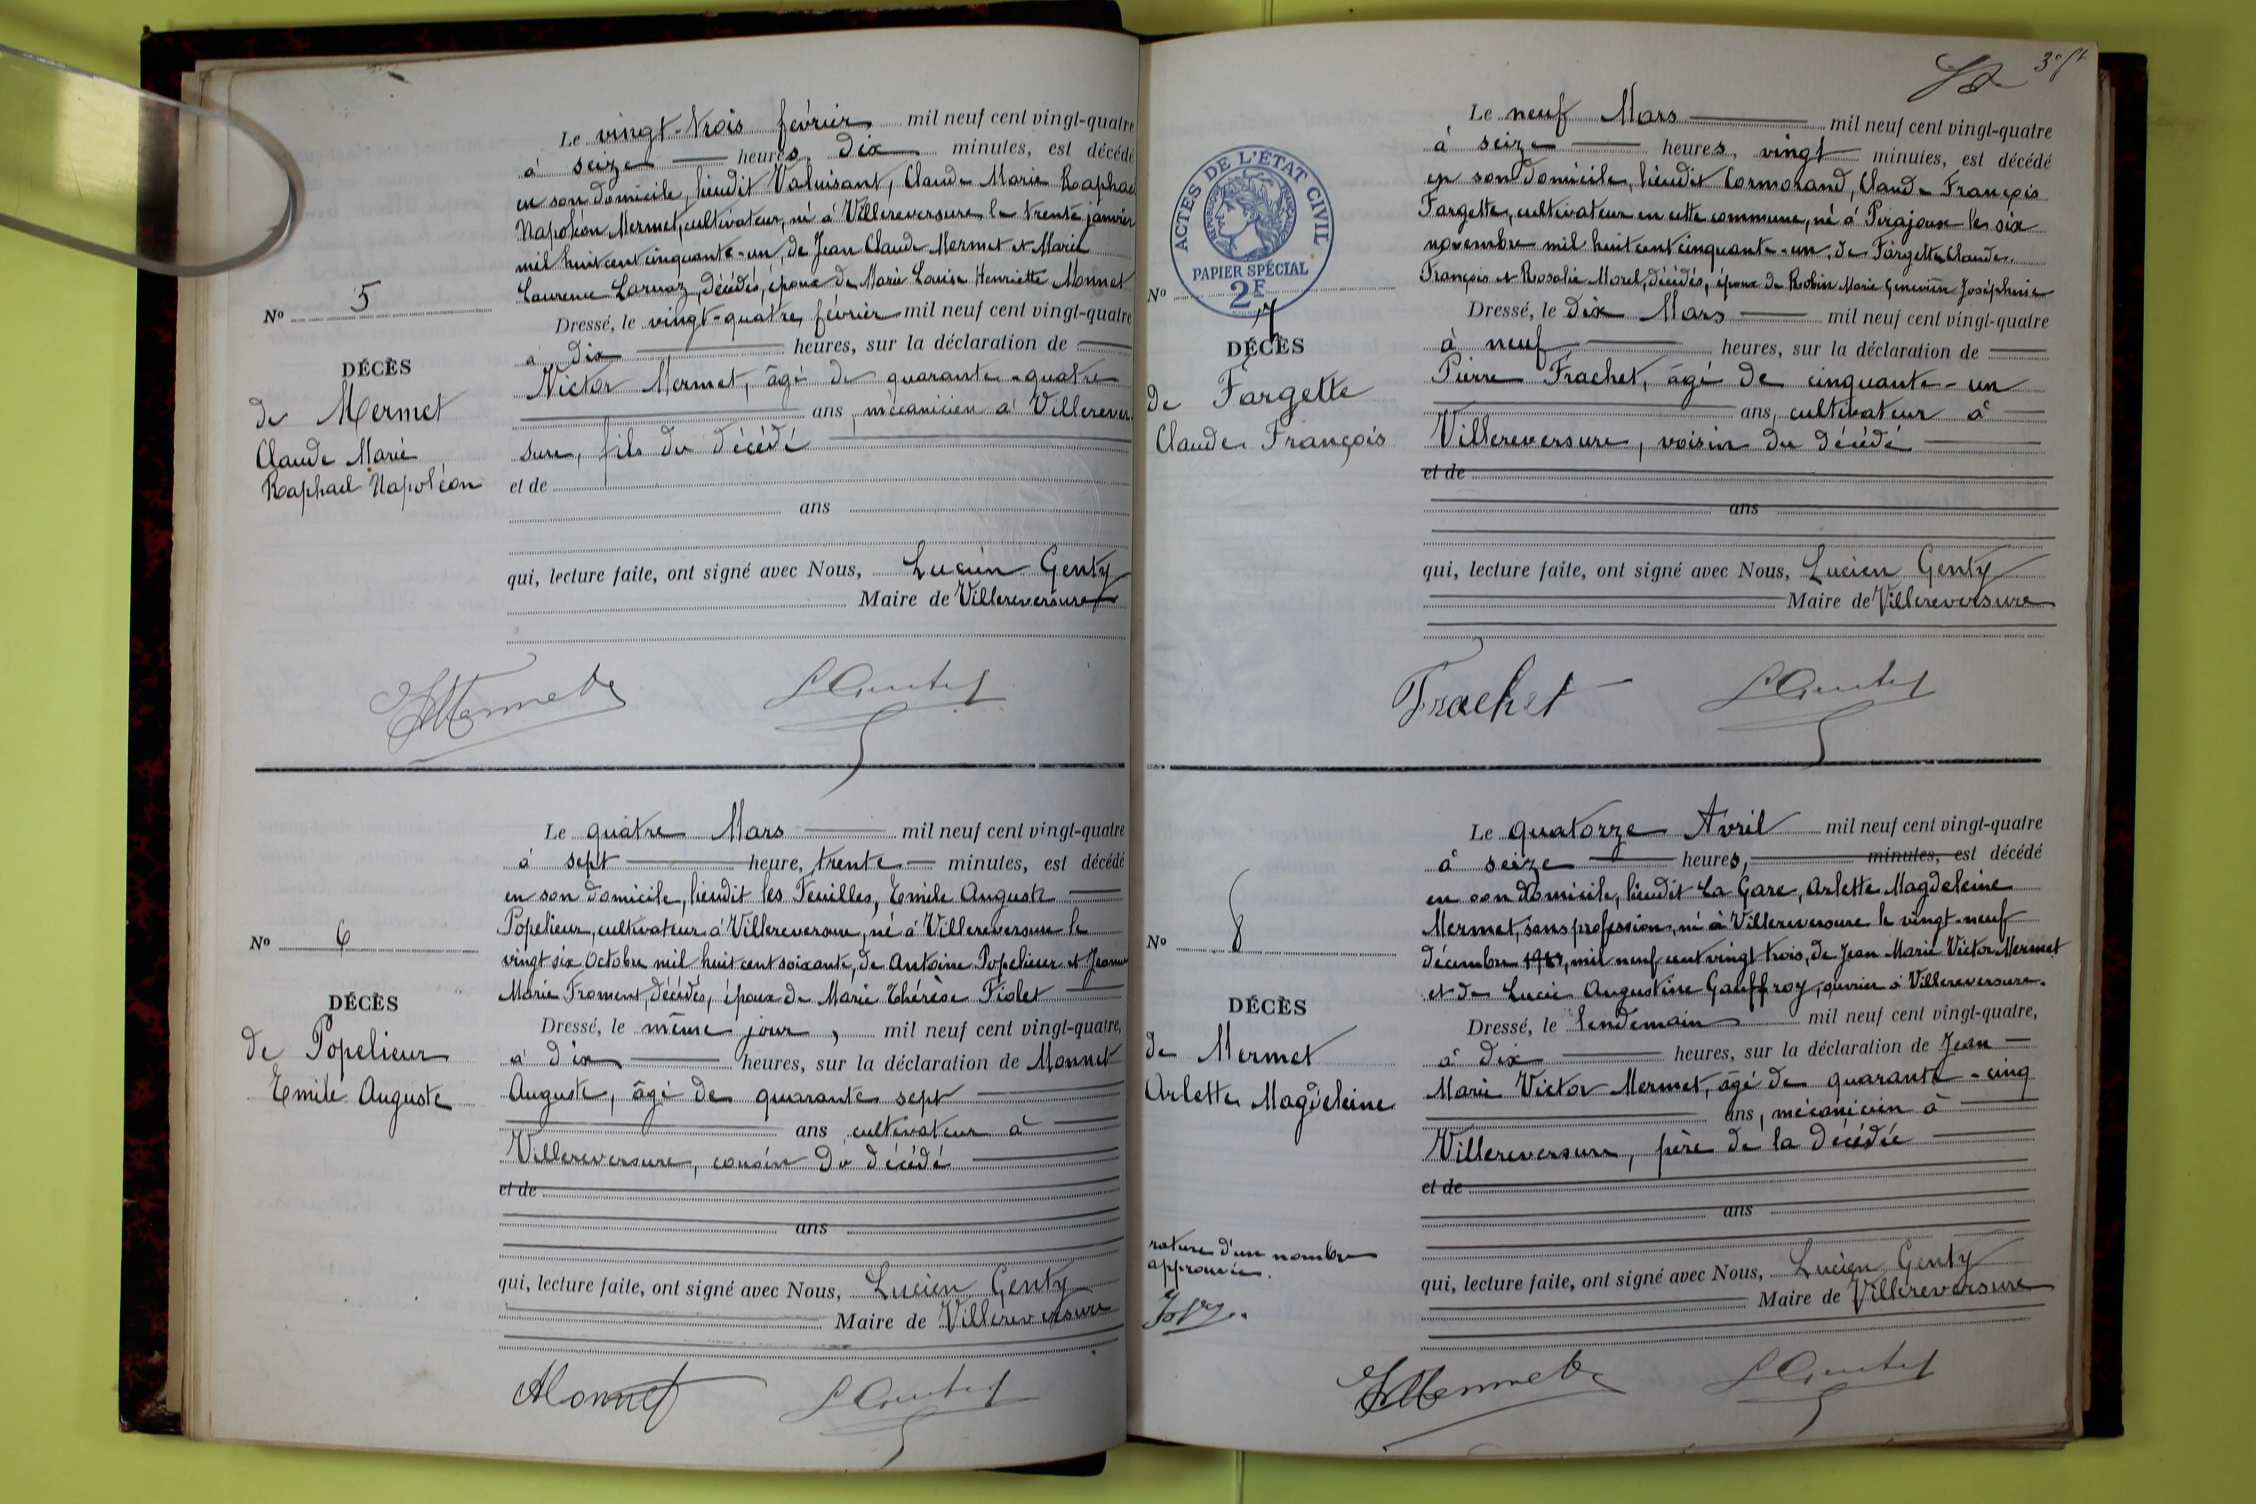 Le vingt-trois février mil neuf cent vingt-quatre
à seize heures, dix minutes, est décédé
en son domicile, lieudit Valuisant, Claude Marie Raphael
Napoléon Mermet, cultivateur, né à Villereversure le trente janvier
mil huit cent cinquante-un, de Jean Claude Mermet et Marie
Laurence Laruaz, décédés, époux de Marie Louise Henriette Monnet
Nº 5
Dressé, le vingt-quatre février mil neuf cent vingt-quatre
à dix heures, sur la déclaration de
DÉCÈS
Victor Mermet, âgé de quarante-quatre
de Mermet
ans, mécanicien à Villerever
Claude Marie
sure, fils du décédé
Raphael Napoléon
et de
ans
qui, lecture faite, ont signé avec Nous, Lucien Genty
Maire de Villereversure
Le quatre Mars mil neuf cent vingt-quatre
à sept heure, trente minutes, est décédé
en son domicile, lieudit les Feuilles, Emile Auguste
Popelieur, cultivateur à Villereversure, né à Villereversure le
Nº 6
vingt six Octobre mil huit cent soixante, de Antoine Popelieur et Jeanne
Marie Froment, décédés, époux de Marie Thérèse Piolet
DÉCÈS
Dressé, le même jour, mil neuf cent vingt-quatre,
de Popelieur
à dix heures, sur la déclaration de Monnet
Emile Auguste
Auguste, âgé de quarante sept
ans cultivateur à
Villereversure, cousin du décédé
et de
ans
qui, lecture faite, ont signé avec Nous, Lucien Genty
Maire de Villereversure
Monnet
Le neuf Mars mil neuf cent vingt-quatre
à seize heures, vingt minutes, est décédé
en son domicile, lieudit Cormorand, Claude François
Fargette, cultivateur en cette commune, né à Pirajoux le six
novembre mil huit cent cinquante-un, de Fargette Claude
François et Rosalie Morel, décédés, époux de Robin Marie Geneviève Joséphine
ACTES DE L'ÉTAT CIVIL
RÉPUBLIQUE FRANÇAISE
PAPIER SPÉCIAL
2F
Nº 7
Dressé, le dix Mars mil neuf cent vingt-quatre
DÉCÈS
à neuf heures, sur la déclaration de
de Fargette
Pierre Frachet, âgé de cinquante-un
ans, cultivateur à
Claude François
Villereversure, voisin du décédé
et de
ans
qui, lecture faite, ont signé avec Nous, Lucien Genty
Maire de Villereversure
Frachet
Le quatorze Avril mil neuf cent vingt-quatre
à seize heures, minutes, est décédé
en son domicile, lieudit La Gare, Arlette Magdeleine
Mermet, sans profession, né à Villereversure le vingt-neuf
Nº 8
décembre mil neuf cent vingt trois, de Jean Marie Victor Mermet
et de Lucie Augustine Gauffroy, ouvrier à Villereversure.
DÉCÈS
Dressé, le lendemain mil neuf cent vingt-quatre,
de Mermet
à dix heures, sur la déclaration de Jean
Arlette Magdeleine
Marie Victor Mermet, âgé de quarante-cinq
ans, mécanicien à
Villereversure, père de la décédée
et de
ans
rature d'un nombre
approuvée.
qui, lecture faite, ont signé avec Nous, Lucien Genty
Maire de Villereversure